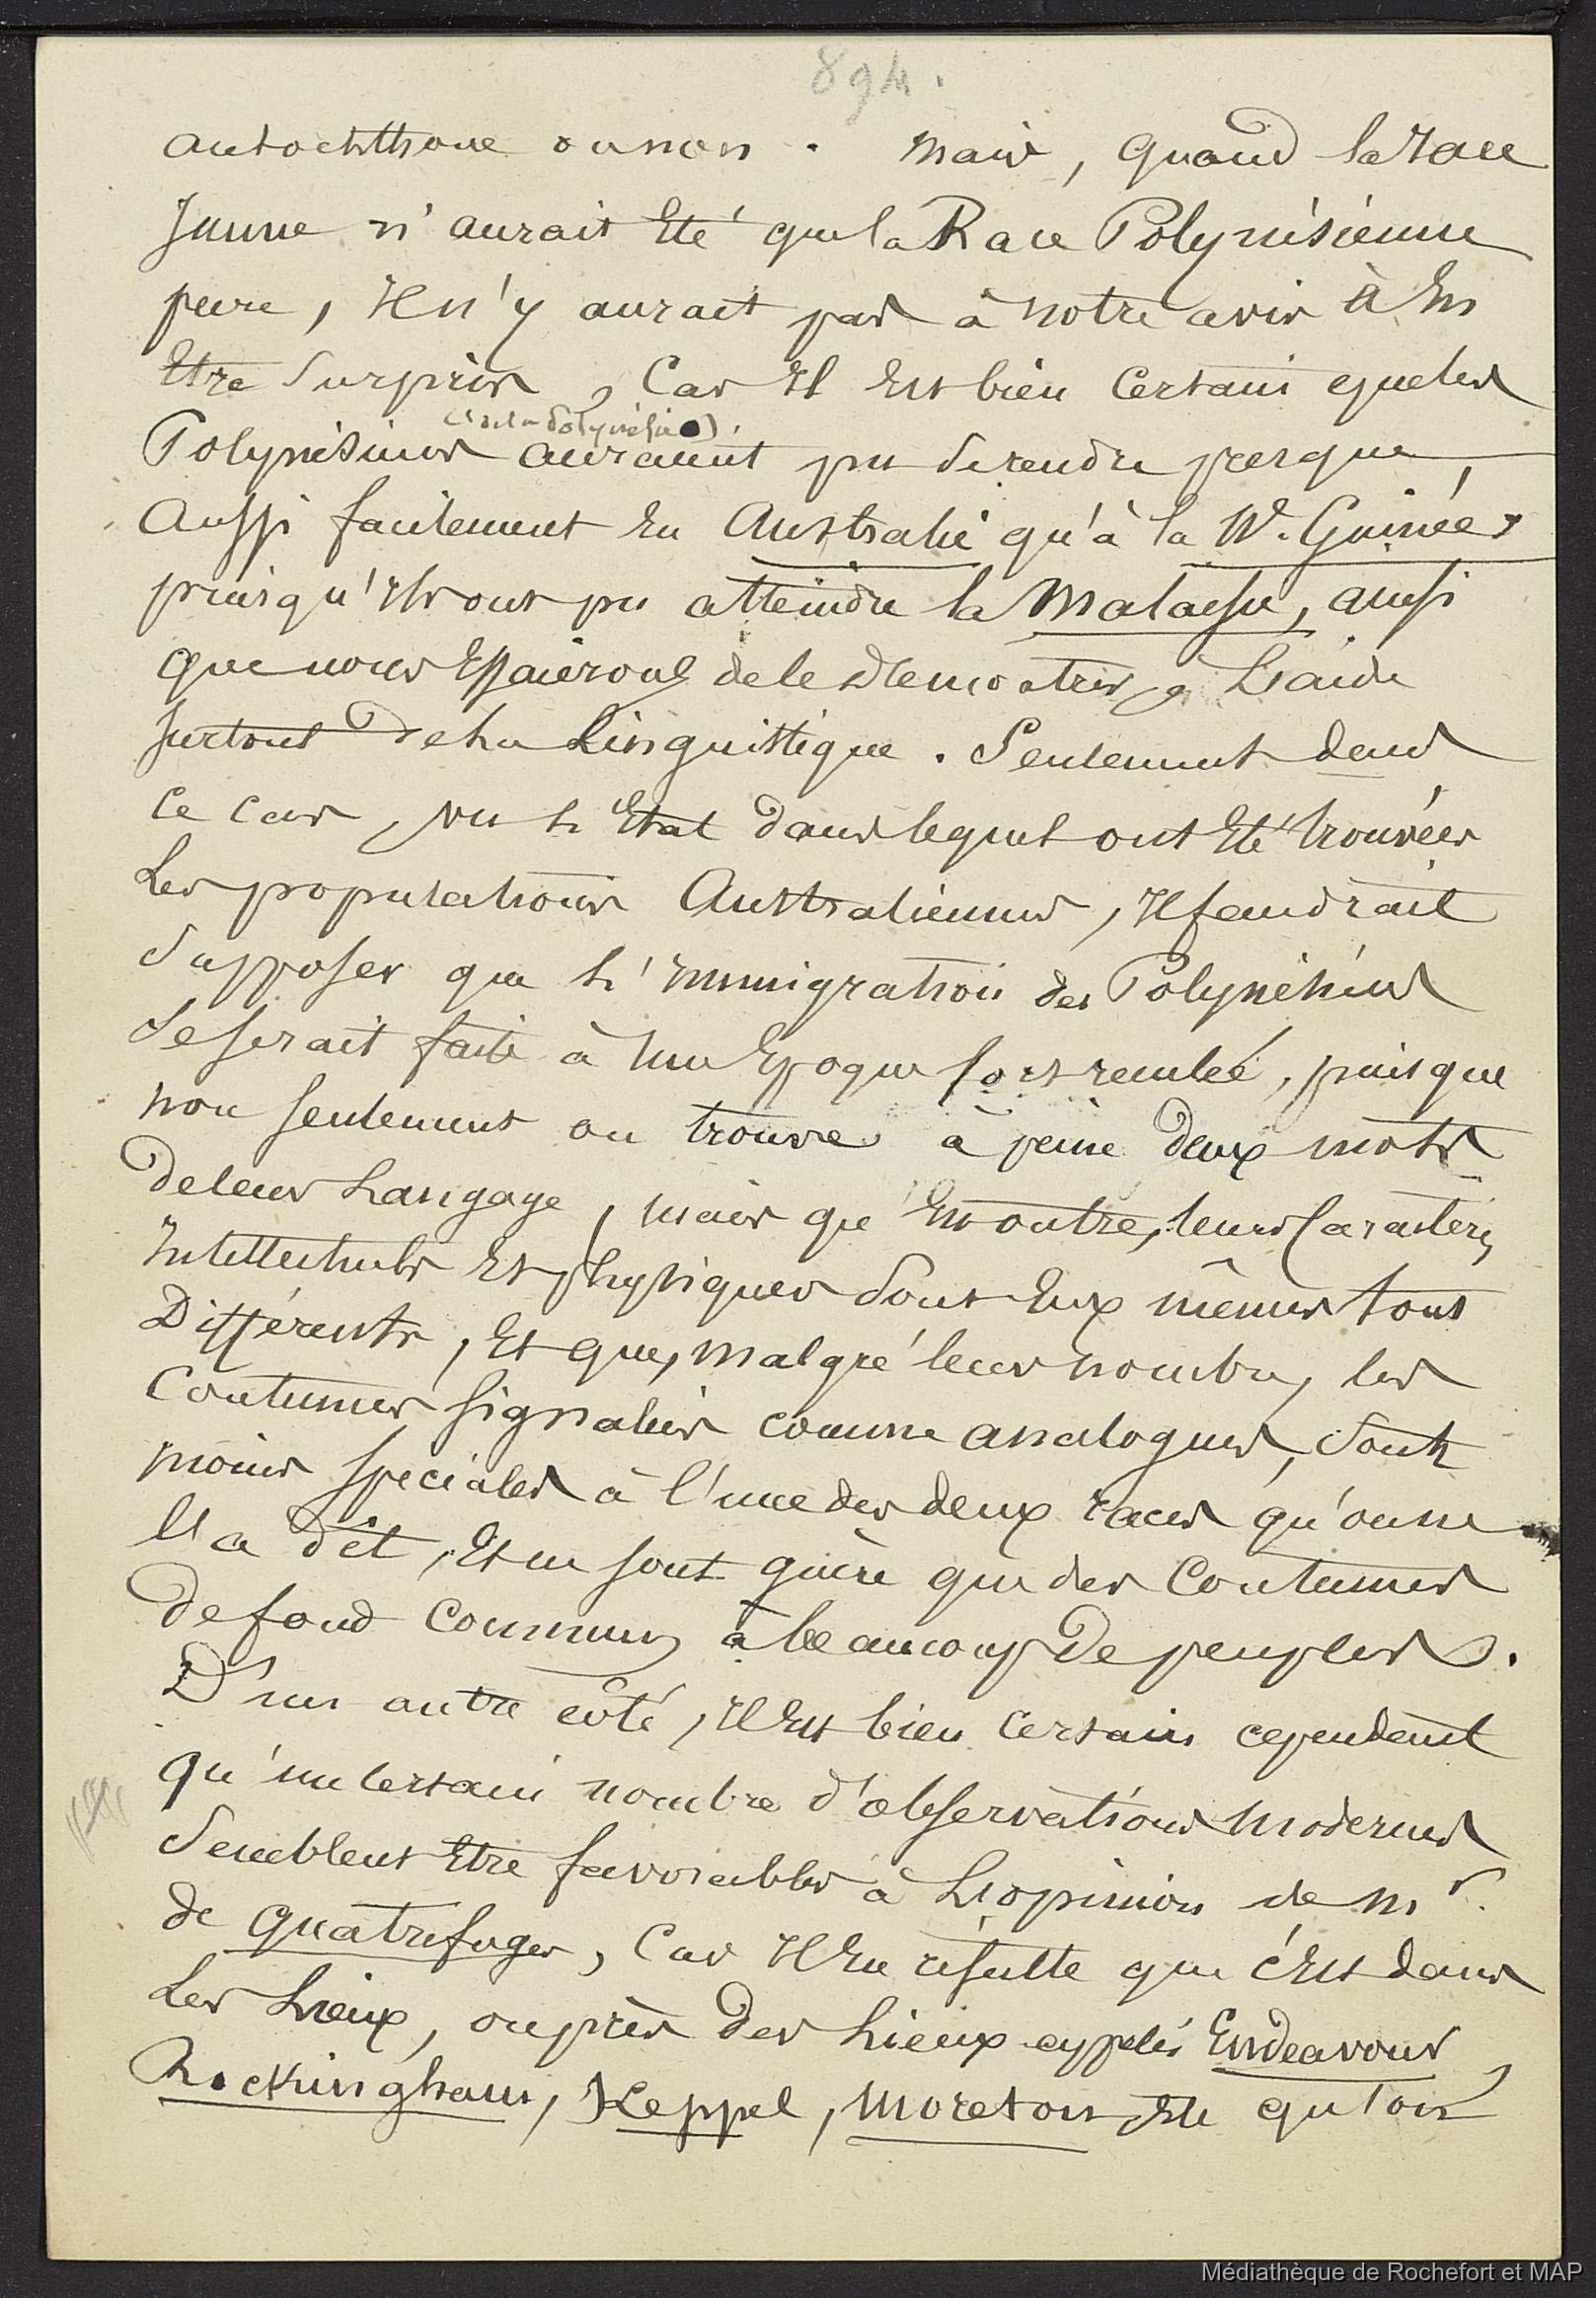 894.
autochthone ou non. mais, quand la race
Jaune n'aurait Eté que la Race Polynésienne
pure, Il n'y aurait pas à notre avis à En
Etre Surpris, Car Il Est bien Certain que les
(de la Polynésie)
Polynésiens auraient pu se rendre presque
aussi facilement En Australie qu'à la N. Guinée,
puisqu'Ils ont pu atteindre la Malaisie, ainsi
que nous Essaierons de le démontrer, à L'aide
surtout de la Linguistique. Seulement dans
ce cas, vu L'Etat dans lequel ont Eté trouvées
Les populations Australiennes, Il faudrait
Supposer que L'Immigration des Polynésiens
se serait faite à une Epoque fort reculée, puisque
non seulement on trouve à peine deux mots
de leur Langage, mais que En outre, leurs Caractères
Intellectuels Et physiques sont Eux mêmes tout
Différents, Et que, malgré leur nombre, les
Coutumes signalées comme analogues, sont
moins spéciales à l'une des deux races qu'on ne
l'a dit, Et ne sont guère que des Coutumes
de fond commun, à beaucoup de peuples.
D'un autre côté, Il Est bien Certain cependant
qu'un Certain nombre d'observations modernes
Semblent Etre favorables à L'opinion de Mr.
de Quatrefages, Car Il En résulte que c'Est dans
Les Lieux, ou près des Lieux appelés Endeavour
Rockingham, Keppel, Moreton, Etc qu'on
Médiathèque de Rochefort et MAP